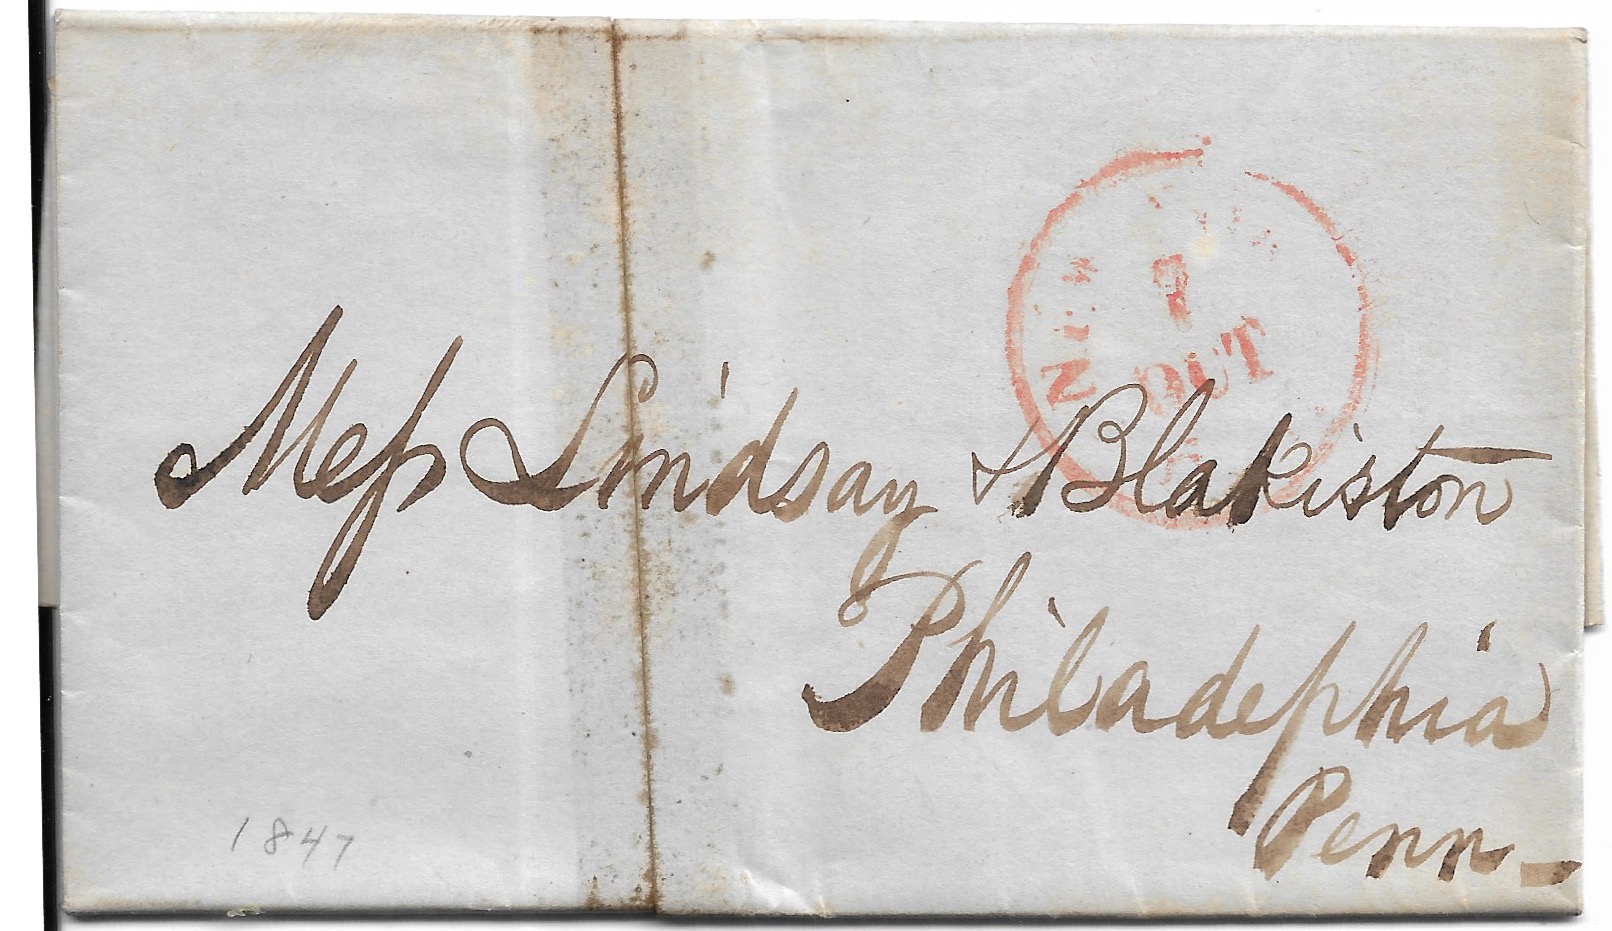 New
7
OUT
Mess Lindsay & Blakiston
Philadephia
Penn
1847